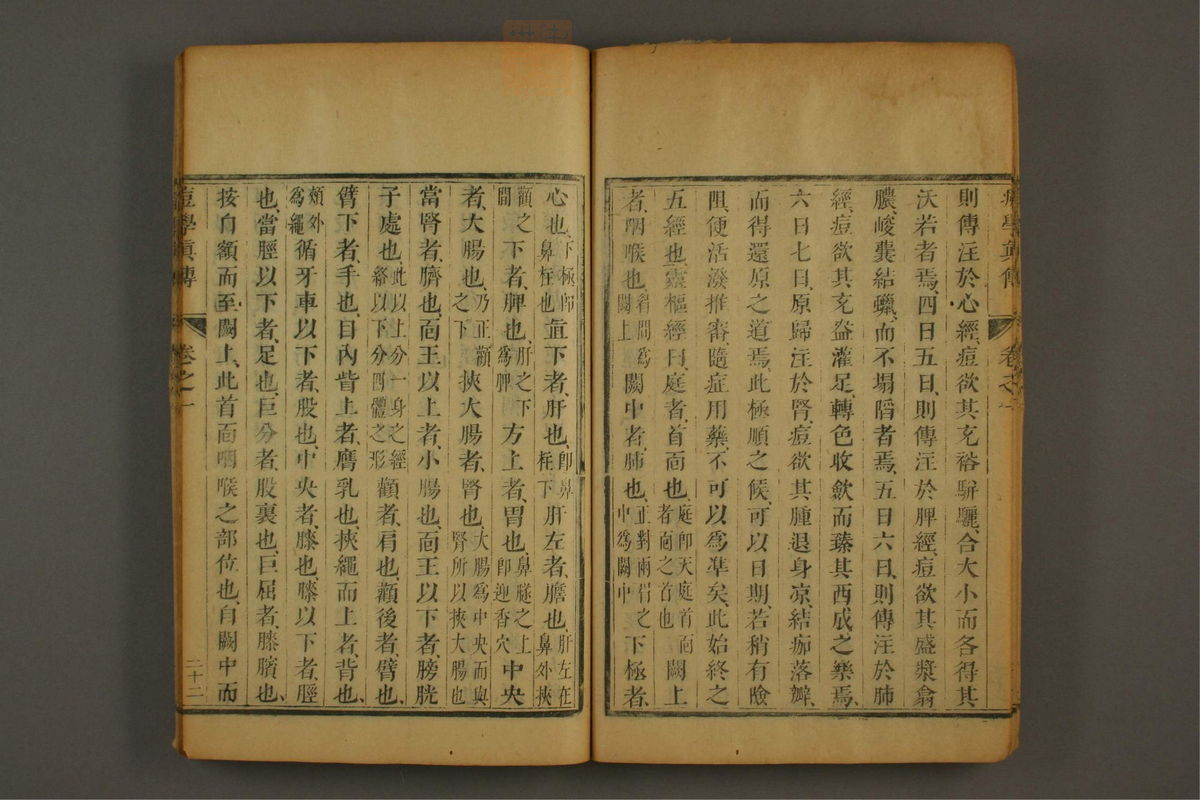 痘學眞傳 卷之一
則傳注於心經痘欲其充裕駢驪合大小而各得其
沃若者焉四日五日則傳注於脾經痘欲其盛漿翕
膿峻糞結蠟而不塌䧟者焉五日六日則傳注於肺
經痘欲其充盈灌足轉色收斂而臻其西成之樂焉
六日七日原歸注於腎痘欲其腫退身凉結痂落瓣
而得還原之道焉此極順之候可以日期若稍有險
阻便活潑推審隨症用藥不可以爲凖矣此始終之
五經也靈樞經曰庭者首面也庭卽天庭首面者面之首也闕上
者咽喉也眉間爲闕上闕中者肺也正對兩眉之中爲闕中下極者
心也下極卽鼻柱也直下者肝也卽鼻柱下肝左者膽也肝左在鼻外挾
顴之間下者脾也肝之下爲脾方上者胃也鼻隧之上卽迎香穴中央
者大腸也乃正顴之下挾大腸者腎也大腸爲中央而與腎所以挾大腸也
當腎者臍也面王以上者小腸也面王以下者膀胱
子處也此以上分一身之經絡以下分四體之形顴者肩也顴後者臂也
臂下者手也目內眥上者膺乳也挾繩而上者背也
頰外爲繩循牙車以下者股也中央者膝也膝以下者脛
也當脛以下者足也巨分者股裏也巨屈者膝臏也
按自額而至闕上此首面咽喉之部位也自闕中而
痘學眞傳 卷之一 二十二